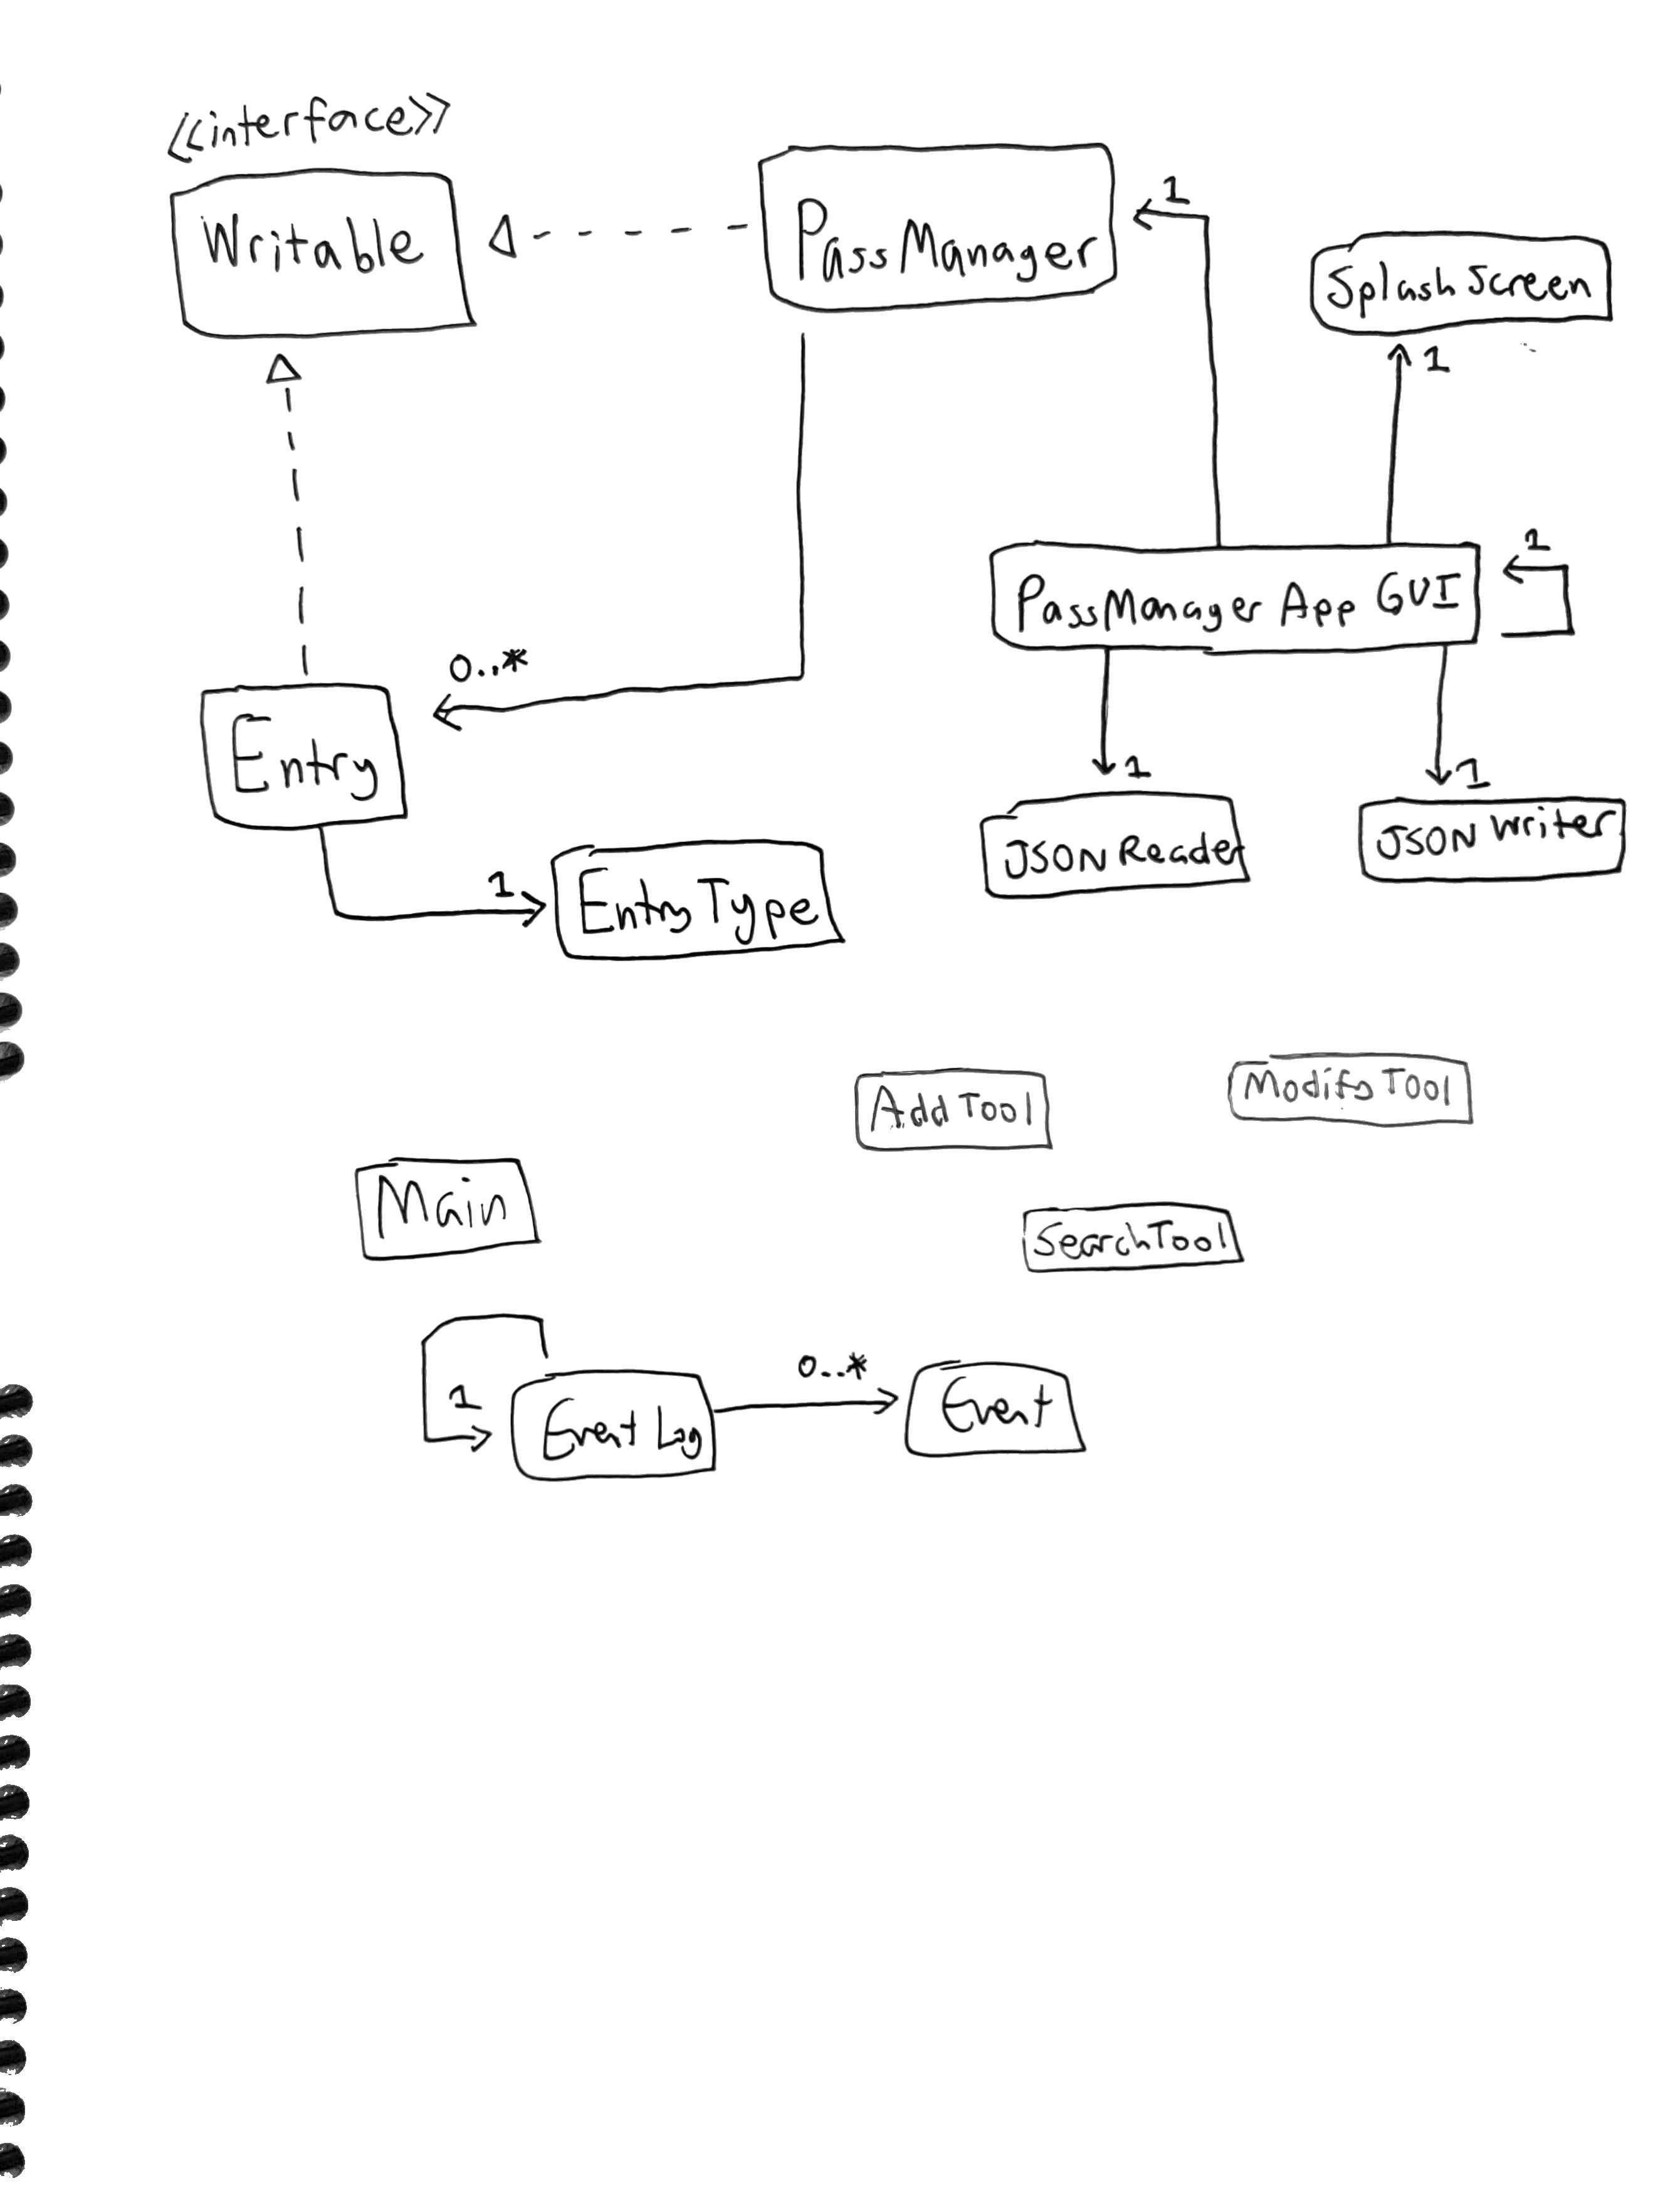 <<interface>>
Writable
PassManager
1
SplashScreen
1
PassManager App GUI
1
0..*
Entry
1
1
JSON Reader
JSON Writer
1
Entry Type
Add Tool
Modify Tool
Main
SearchTool
1
Event Log
0..*
Event